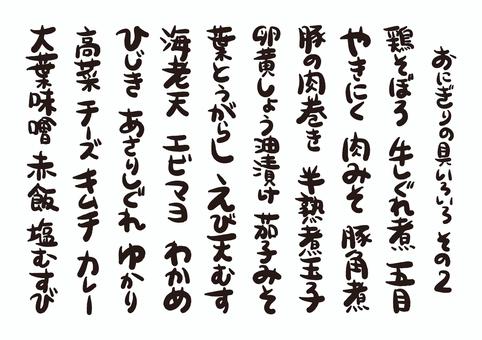 おにぎりの具いろいろ その2
鶏そぼろ 牛しぐれ煮 五目
やきにく 肉みそ 豚角煮
豚の肉巻き 半熟煮玉子
卵黄しょう油漬け 茄子みそ
葉とうがらし えび天むす
海老天 エビマヨ わかめ
ひじき あさりしぐれ ゆかり
高菜 チーズ キムチ カレー
大葉味噌 赤飯 塩むすび